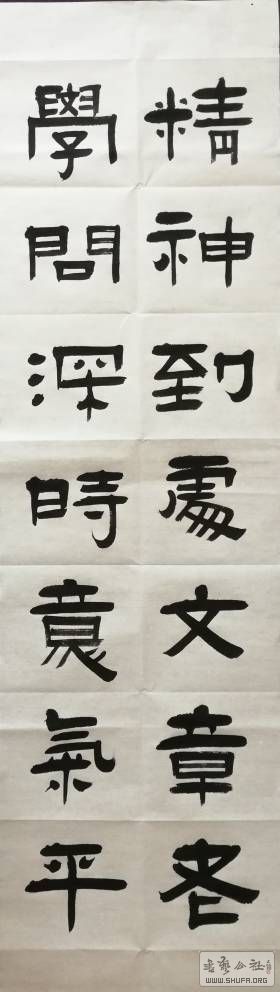 精神到處文章老
學問深時意氣平
WWW.SHUFA.ORG